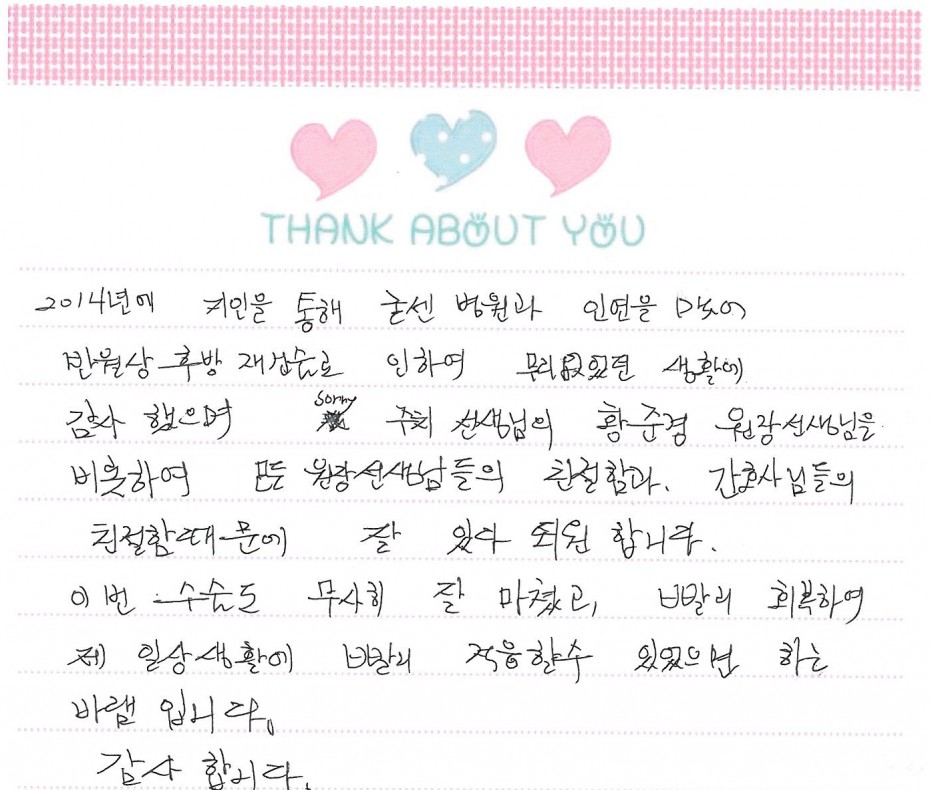 THANK ABOUT YOU
2014년에 지인을 통해 굳센 병원과 인연을 맺어
반월상 후방 재수술로 인하여 무리없었던 생활에
감사 했으며 sorry 주치 선생님의 황준경 원장선생님을
비롯하여 모든 원장선생님들의 친절함과. 간호사님들의
친절함때문에 잘 있다 퇴원 합니다.
이번 수술도 무사히 잘 마쳤고, 빨리 회복하여
제 일상생활에 빨리 적응할수 있었으면 하는
바램 입니다.
감사 합니다.